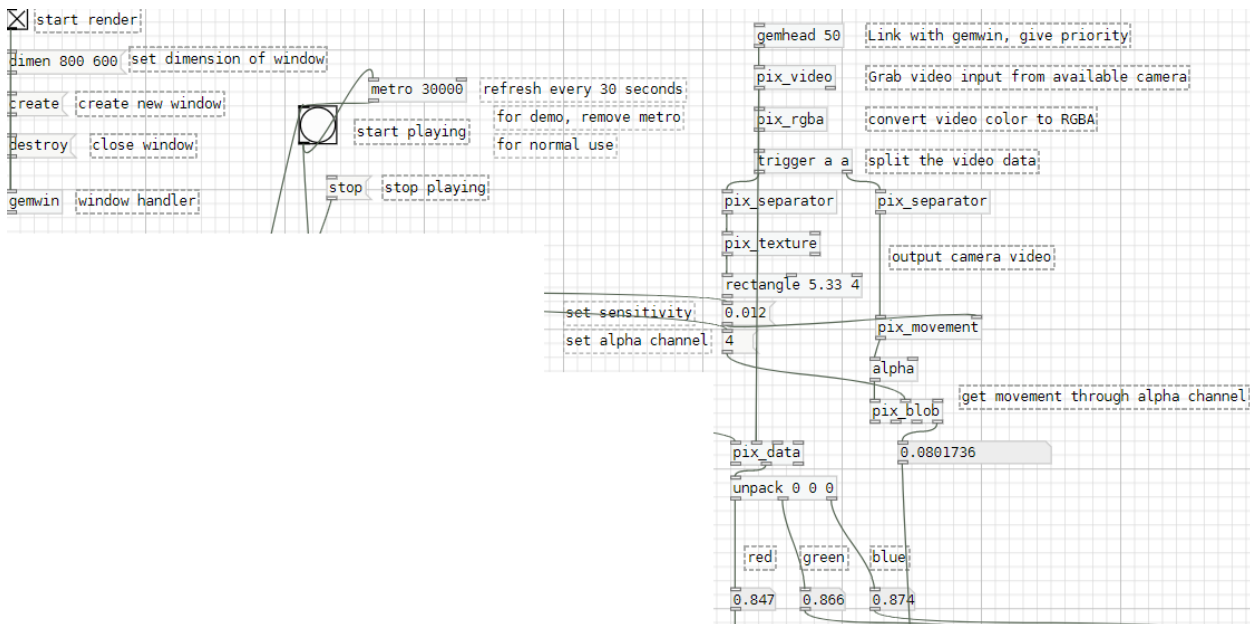 start render
dimen 800 600
set dimension of window
create
create new window
destroy
close window
gemwin
window handler
metro 30000
refresh every 30 seconds
for demo, remove metro
for normal use
start playing
stop
stop playing
gemhead 50
Link with gemwin, give priority
pix_video
Grab video input from available camera
pix_rgba
convert video color to RGBA
trigger a a
split the video data
pix_separator
pix_separator
pix_texture
output camera video
rectangle 5.33 4
set sensitivity
0.012
pix_movement
set alpha channel
4
alpha
get movement through alpha channel
pix_blob
pix_data
0.0801736
unpack 0 0 0
red
green
blue
0.847
0.866
0.874